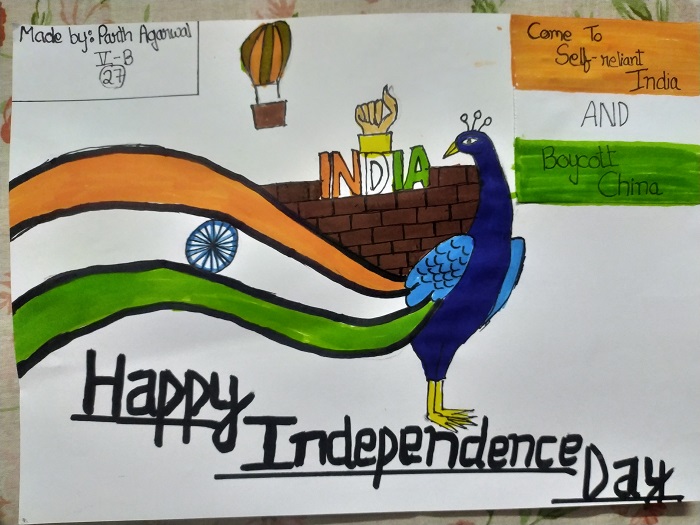 Made by: Parth Agarwal
V-B
27
Come To
Self-reliant
India
AND
Boycott
China
INDIA
Happy
Independence
Day